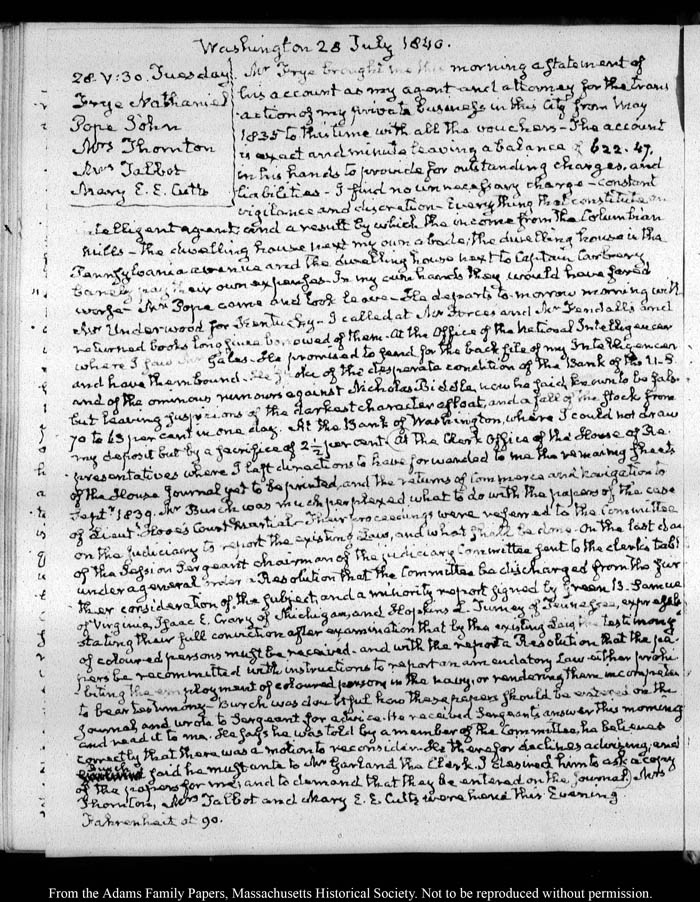 Washington 28 July 1840.
28 V:30. Tuesday
Frye Nathaniel
Pope John
Mrs Thornton
Mrs Talbot
Mary E. E. Cutts
Mr Frye brought me this morning a statement of
his account as my agent and attorney for the trans
action of my private business in this City from May
1835 to this time with all the vouchers - The account
is exact and minute leaving a balance of 622.47.
in his hands to provide for outstanding charges, and
liabilities - I find no unnecessary charge - constant
vigilance and discretion - Everything that constitutes an
intelligent agent; and a result by which the income from the Columbian
Mills - the dwelling house next my own abode; the dwelling house in the
Pennsylvania avenue and the dwelling house next to Captain Carbery
barely pay their own expenses. In my own hands they would have fared
worse - Mr Pope came and took leave - He departs to-morrow morning with
Mr Underwood for Kentucky. I called at Mr Forces and Mr Kendalls and
returned books long since borrowed of them. At the Office of the National Intelligencer
where I saw Mr Gales. He promised to send for the back file of my Intelligencer
and have them bound. He spoke of the desperate condition of the Bank of the U.S.
and of the ominous rumours against Nicholas Biddle, now he said, known to be false
but leaving suspicions of the darkest character afloat, and a fall of the stock from
70 to 63 per cent in one day. At the Bank of Washington, where I could not draw
my deposit but by a sacrifice of 2½ per cent. At the Clerk Office of the House of Re-
presentatives where I left directions to have forwarded to me the remaining sheets
of the House Journal yet to be printed, and the returns of Commerce and Navigation to
Septr 1839. Mr Burch was much perplexed what to do with the papers of the case
of Lieut Hooe's Court Martial - Their proceedings were referred to the Committee
on the Judiciary to report the existing Law, and what shall be done. On the last day
of the Session Sergeant chairman of the judiciary Committee sent to the clerks table
under a general order a Resolution that the Committee be discharged from the fur
ther consideration of the subject, and a minority report signed by Green B. Samuels
of Virginia, Isaac E. Crary of Michigan, and Hopkins L. Turney of Tennessee, expressly
stating their full conviction after examination that by the existing Law the testimony
of coloured persons must be received - and with the report a Resolution that the pa-
pers be recommitted with instructions to report an amendatory Law either prohi-
biting the employment of coloured persons in the navy, or rendering them incompetent
to bear testimony - Burch was doubtful how these papers should be entered on the
Journal and wrote to Sergeant for advice. He received Sergeants answer this morning
and read it to me. He says he was told by a member of the Committee, he believes
correctly that there was a motion to reconsider. He therefor declines advising, and
Burch said he must write to Mr Garland the Clerk. I desired him to ask a copy
of the papers for me; and to demand that they be entered on the Journal. Mrs
Thornton, Mrs Talbot and Mary E. E. Cutts were here this Evening
Fahrenheit at 90.
From the Adams Family Papers, Massachusetts Historical Society. Not to be reproduced without permission.